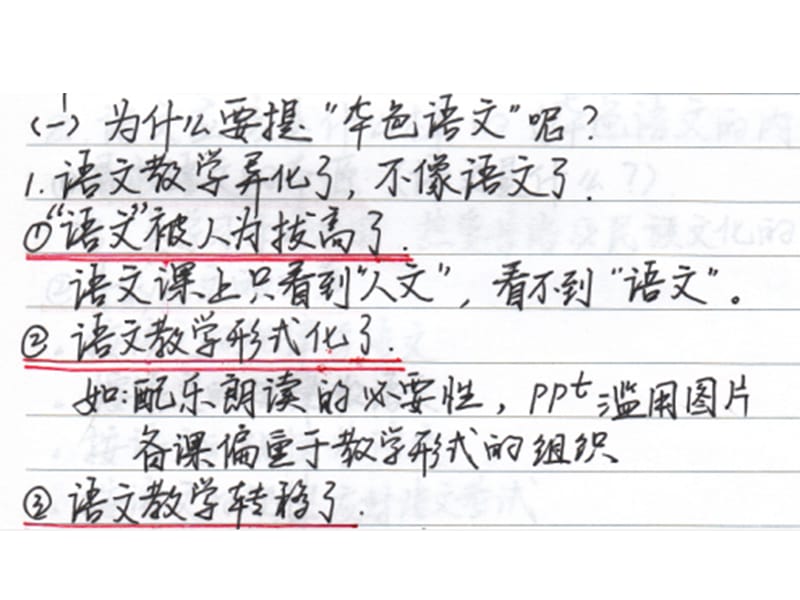 (一) 为什么要提“本色语文”呢?
1. 语文教学异化了, 不像语文了.
①“语文”被人为拔高了.
语文课上只看到“人文”, 看不到“语文”。
② 语文教学形式化了.
如:配乐朗读的必要性, ppt滥用图片
备课偏重于教学形式的组织
③ 语文教学转移了.